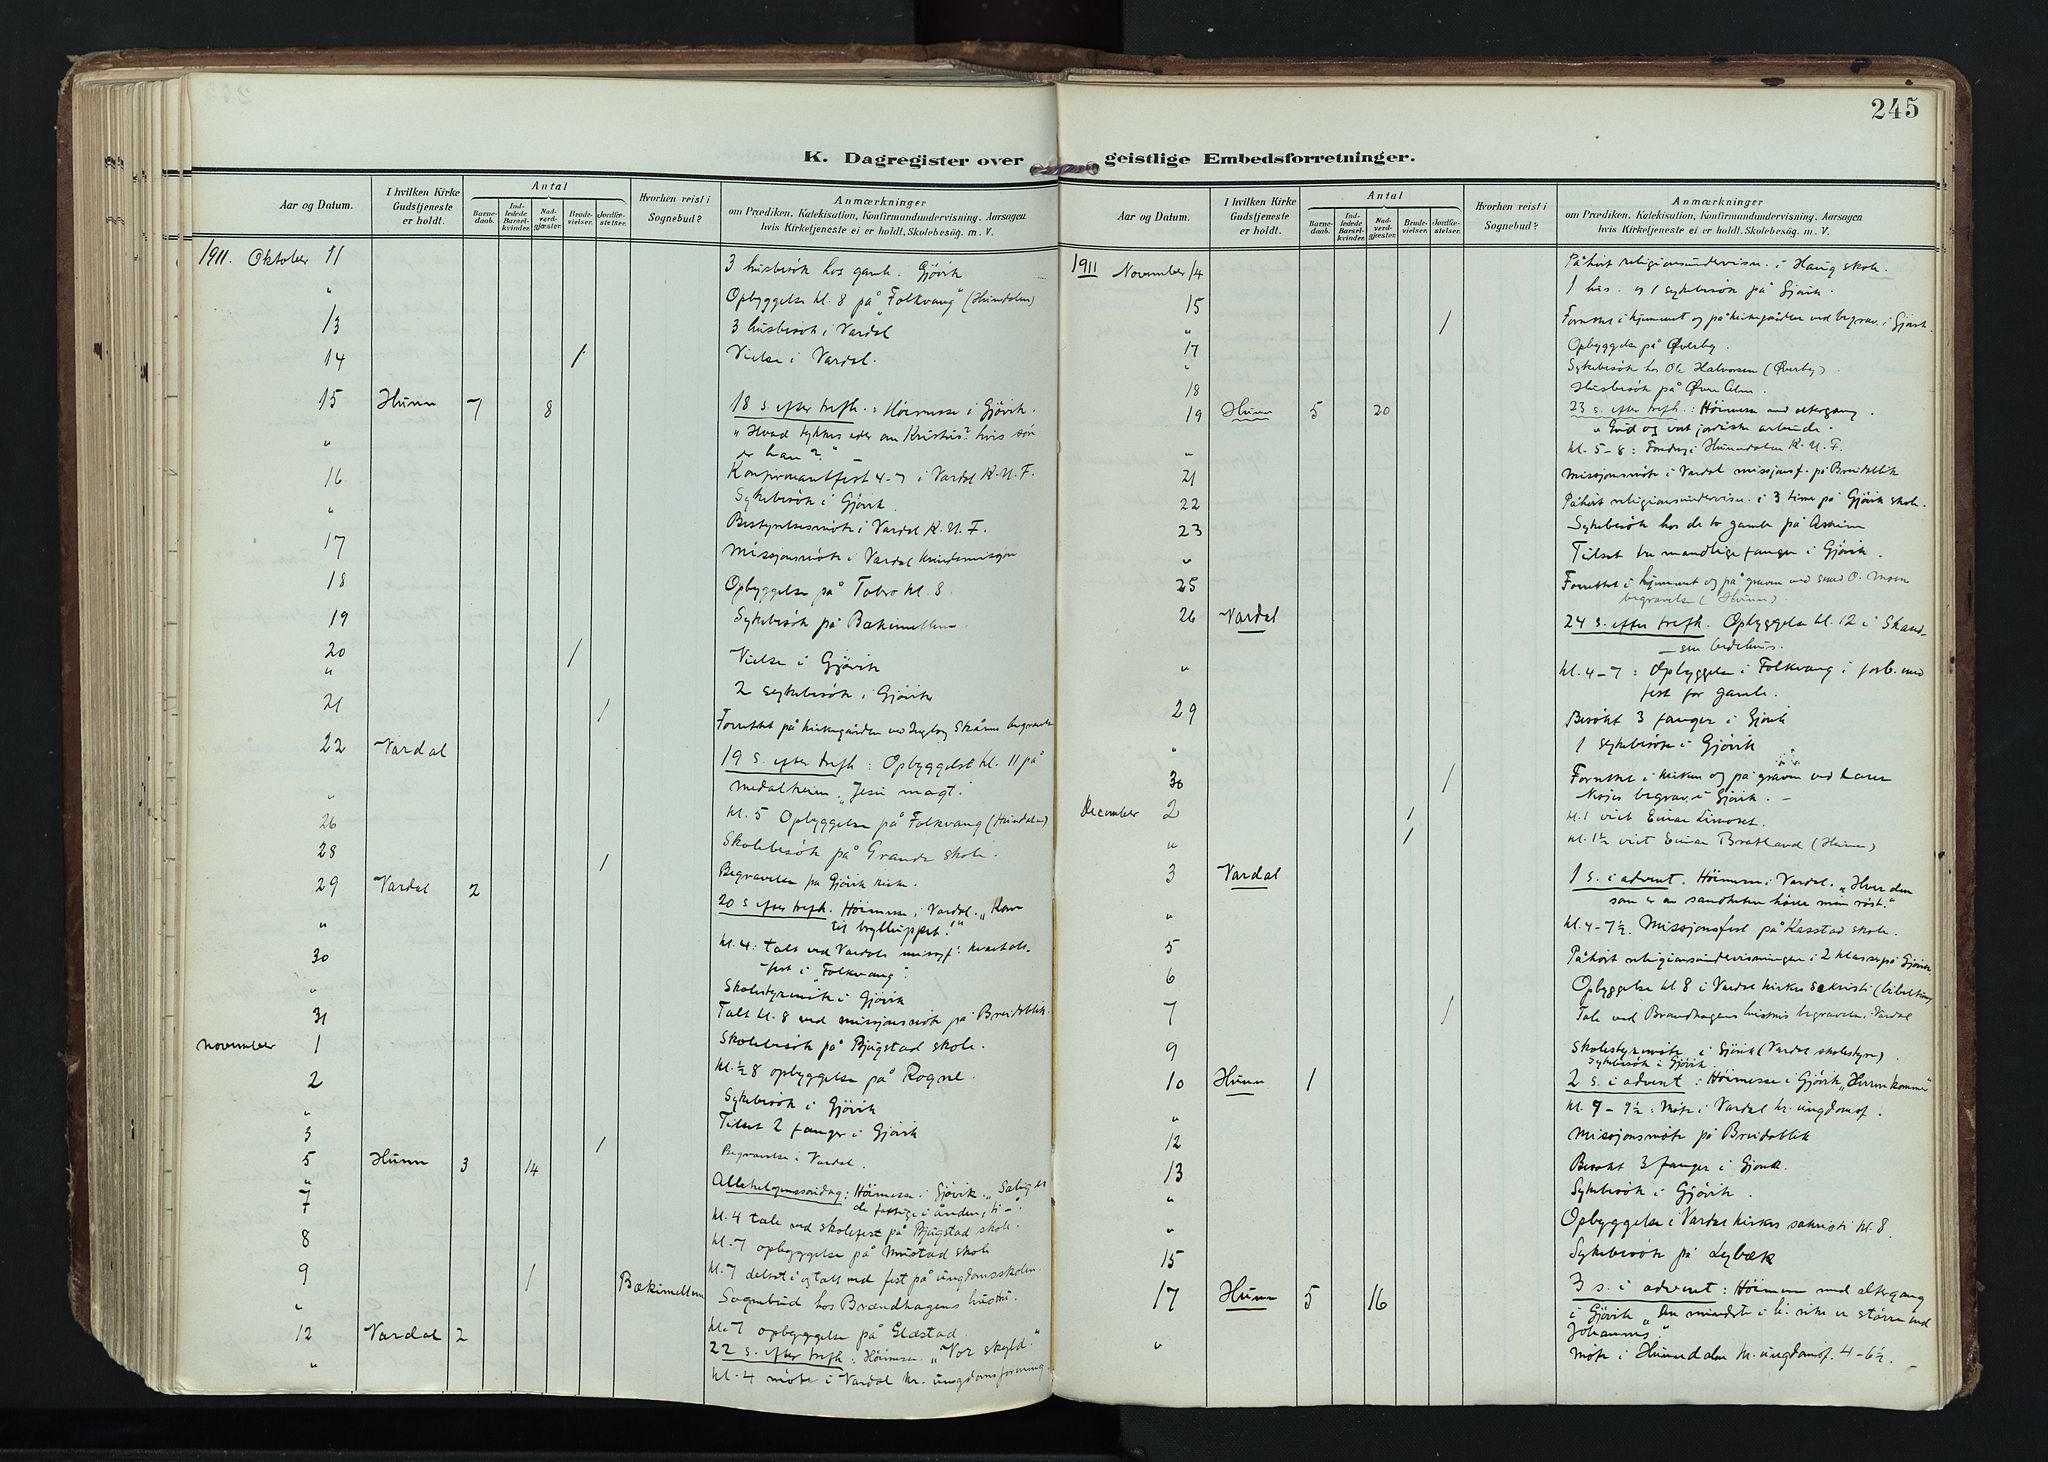 245
K. Dagregister over geistlige Embedsforretninger.
Aar og Datum.
I hvilken Kirke Gudstjeneste er holdt.
Antal
Barnedaab.
Indledede Barselkvinder.
Nadverdgjæster.
Brudevielser.
Jordfæstelser.
Hvorhen reist i Sognebud?
Anmærkninger
om Prædiken, Katekisation, Konfirmandundervisning, Aarsagen
hvis Kirketjeneste ei er holdt, Skolebesøg m. V.
1911. Oktober 11 3 husbesök hos gamle. Gjövik
" Opbyggelse kl. 8 på "Folkvang" (Hundalen)
13 3 husbesök i Vardal
14 1 Vielse i Vardal.
15 Hunn 7 8 18 s. efter trefh.: Höimesse i Gjövik.
"Hvad tykkes eder om Kristus? hvis sön
er han?"
" Konfirmantfest 4-7 i Vardal K.U.F.
16 Sykebesök i Gjövik.
" Bestyrelsesmöte i Vardal K.U.F.
17 Missjonsmöte i Vardal kvindemisjon
18 Opbyggelse på Tobro kl. 8.
19 Sykebesök på Bækimellem.
20 1 Vielse i Gjövik
" 2 sykebesök i Gjövik
21 1 Forrettet på kirkegården ved begravelse
22 Vardal 19 s. efter trefh: Opbyggelse kl. 11 på
Medalheim "Jesu magt.
" kl. 5 Opbyggelse på Folkvang (Hundalen)
26 Skolebesök på Grande skole.
28 1 Begravelse på Gjövik kirke.
29 Vardal 2 20 s. efter trefh. Höimesse i Vardal. "Kom
til bryllupet!"
" kl. 4: tale ved Vardals
fest i "Folkvang".
30 Skolestyremöte i Gjövik
" Talt kl. 8 ved missjonsmöte på Breidablik.
31 Skolebesök på Bjugstad skole.
November 1 kl. ½8 opbyggelse på Rogne.
2 Sykebesök i Gjövik
" Tilset 2 fanger i Gjövik
3 1 Begravelse i Vardal.
5 Hunn 3 14 Allehelgenssöndag: Höimesse i Gjövik. "Salig er
de fattige i ånden, ti –"
" kl. 4 tale ved skolefest på Bjugstad skole.
7 kl. 7 opbyggelse på Mustad skole
8 kl. 7 deltat i og talt ved fest på ungdomsskolen.
9 1 Bækimellem Sognebud hos Brændhagens hustru.
" kl. 7 opbyggelse på Glæstad.
12 Vardal 2 22 s. efter trefh: Höimesse. "Vor skyld."
" kl. 4 möte i Vardal kr. ungdomsforening.
1911 November 14 Påhört religionsundervisn. i Haug skole.
15 1 hus. og 1 sykebesök på Gjövik.
" 1 Forrettet i hjemmet og på kirkegården ved begrav. i Gjövik.
17 Opbyggelse på Øverby.
" Sykebesök hos Ole Halvorsen (Øverby).
18 Husbesök på Øvre Alm.
19 Hunn 5 20 23 s. efter trefh.: Höimesse med altergang.
"Gud og vort jordiske arbeide.
" kl. 5-8: Foredrag i Hunndalen K.U.F.
21 Missjonsmöte i Vardal missjonsf. på Breidablik
22 Påhört religionsundervisn. i 3 timer på Gjövik skole.
23 Sykebesök hos de to gamle på Askeim
" Tilset tre mandlige fanger i Gjövik.
25 Forrettet i hjemmet og på graven ved smed O. Moens
begravelse (Hunn).
26 Vardal 24 s. efter trefh. Opbyggelse kl. 12 i
bedehus.
" kl. 4-7: Opbyggelse i Folkvang i forb. med
fest for gamle.
29 Besökt 3 fanger i Gjövik
" 1 sykebesök i Gjövik
30 1 Forrettet i kirken og på graven ved
begrav. i Gjövik. –
December 2 1 kl. 1 viet Einar Limoset.
" 1 kl. 1½ viet Einar Bratland (Hunn)
3 Vardal 1 s. i advent. Höimesse i Vardal. "Hver den
som er av sandheten hörer min röst."
" kl. 4-7½. Missjonsfest på Kasstad skole.
5 Påhört religionsundervisningen i 2 klasser på Gjövik
6 Opbyggelse kl. 8 i Vardal kirkes sakristi (bibeltime)
7 1 Tale ved Brændhagens hustrus begravelse i Vardal
9 Skolestyremöte i Gjövik (Vardal skolestyre).
Sykebesök i Gjövik
10 Hunn 1 2 s. i advent: Höimesse i Gjövik "Herren komme"
" kl. 7-9½: Möte i Vardal kr. ungdomsf.
12 Missjonsmöte på Breidablik
13 Besökt 3 fanger i Gjövik.
" Sykebesök i Gjövik.
" Opbyggelse i Vardal kirkes sakristi kl. 8.
15 Sykebesök på Lybæk
17 Hunn 5 16 3 s. i advent: Höimesse med altergang
i Gjövik "Den mindste i hi. rike er större end
Johannes."
" Möte i Hunndalen kr. ungdomsf. 4-6½.